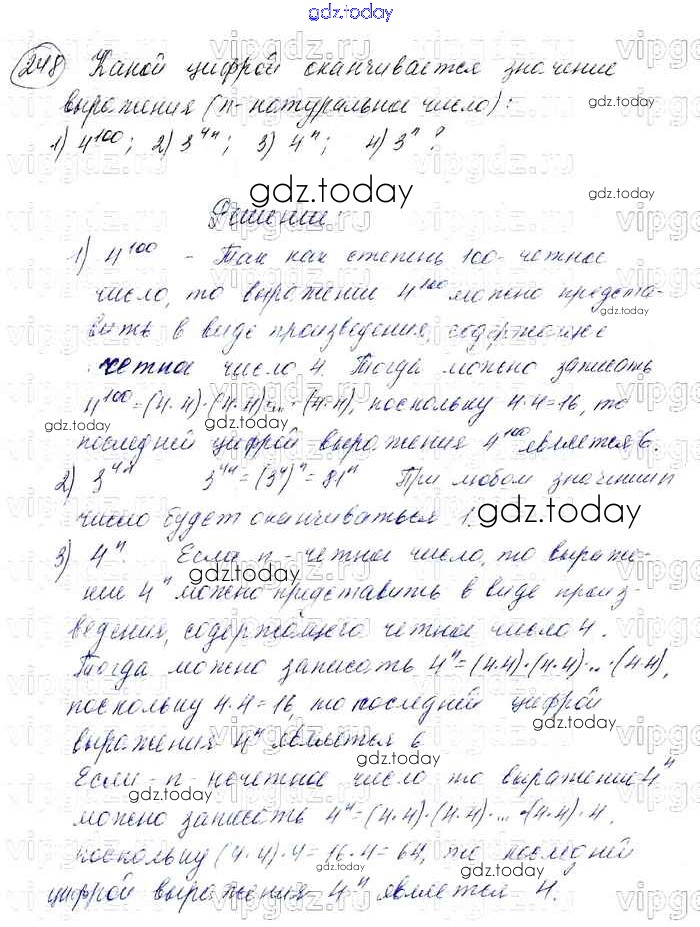 gdz.today
248 Какой цифрой оканчивается значение
выражения (n - натуральное число):
1) 4^100; 2) 3^4n; 3) 4^n; 4) 3^n?
Решение:
1) 4^100 - Так как степень 100 - четное
число, то выражение 4^100 можно предста-
вить в виде произведения, содержащее
четное число 4. Тогда можно записать
4^100=(4·4)·(4·4)·...·(4·4), поскольку 4·4=16, то
последней цифрой выражения 4^100 является 6.
2) 3^4n 3^4n=(3^4)^n=81^n При любом значении n
число будет оканчиваться 1.
3) 4^n. Если n - четное число, то выраже-
ние 4^n можно представить в виде произ-
ведения, содержащего четное число 4.
Тогда можно записать 4^n=(4·4)·(4·4)·...·(4·4),
поскольку 4·4=16, то последней цифрой
выражения 4^n является 6
Если - n - нечетное число то выражение 4^n
можно записать 4^n=(4·4)·(4·4)·...·(4·4)·4,
поскольку (4·4)·4=16·4=64, то последней
цифрой выражения 4^n является 4.